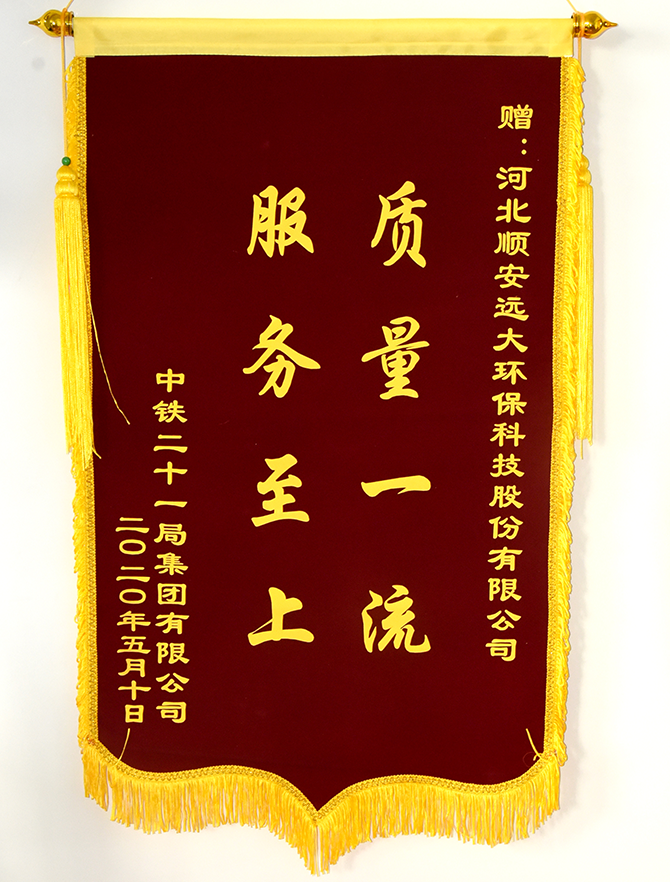 赠：河北顺安远大环保科技股份有限公司
质量一流
服务至上
中铁二十一局集团有限公司
二〇二〇年五月十日